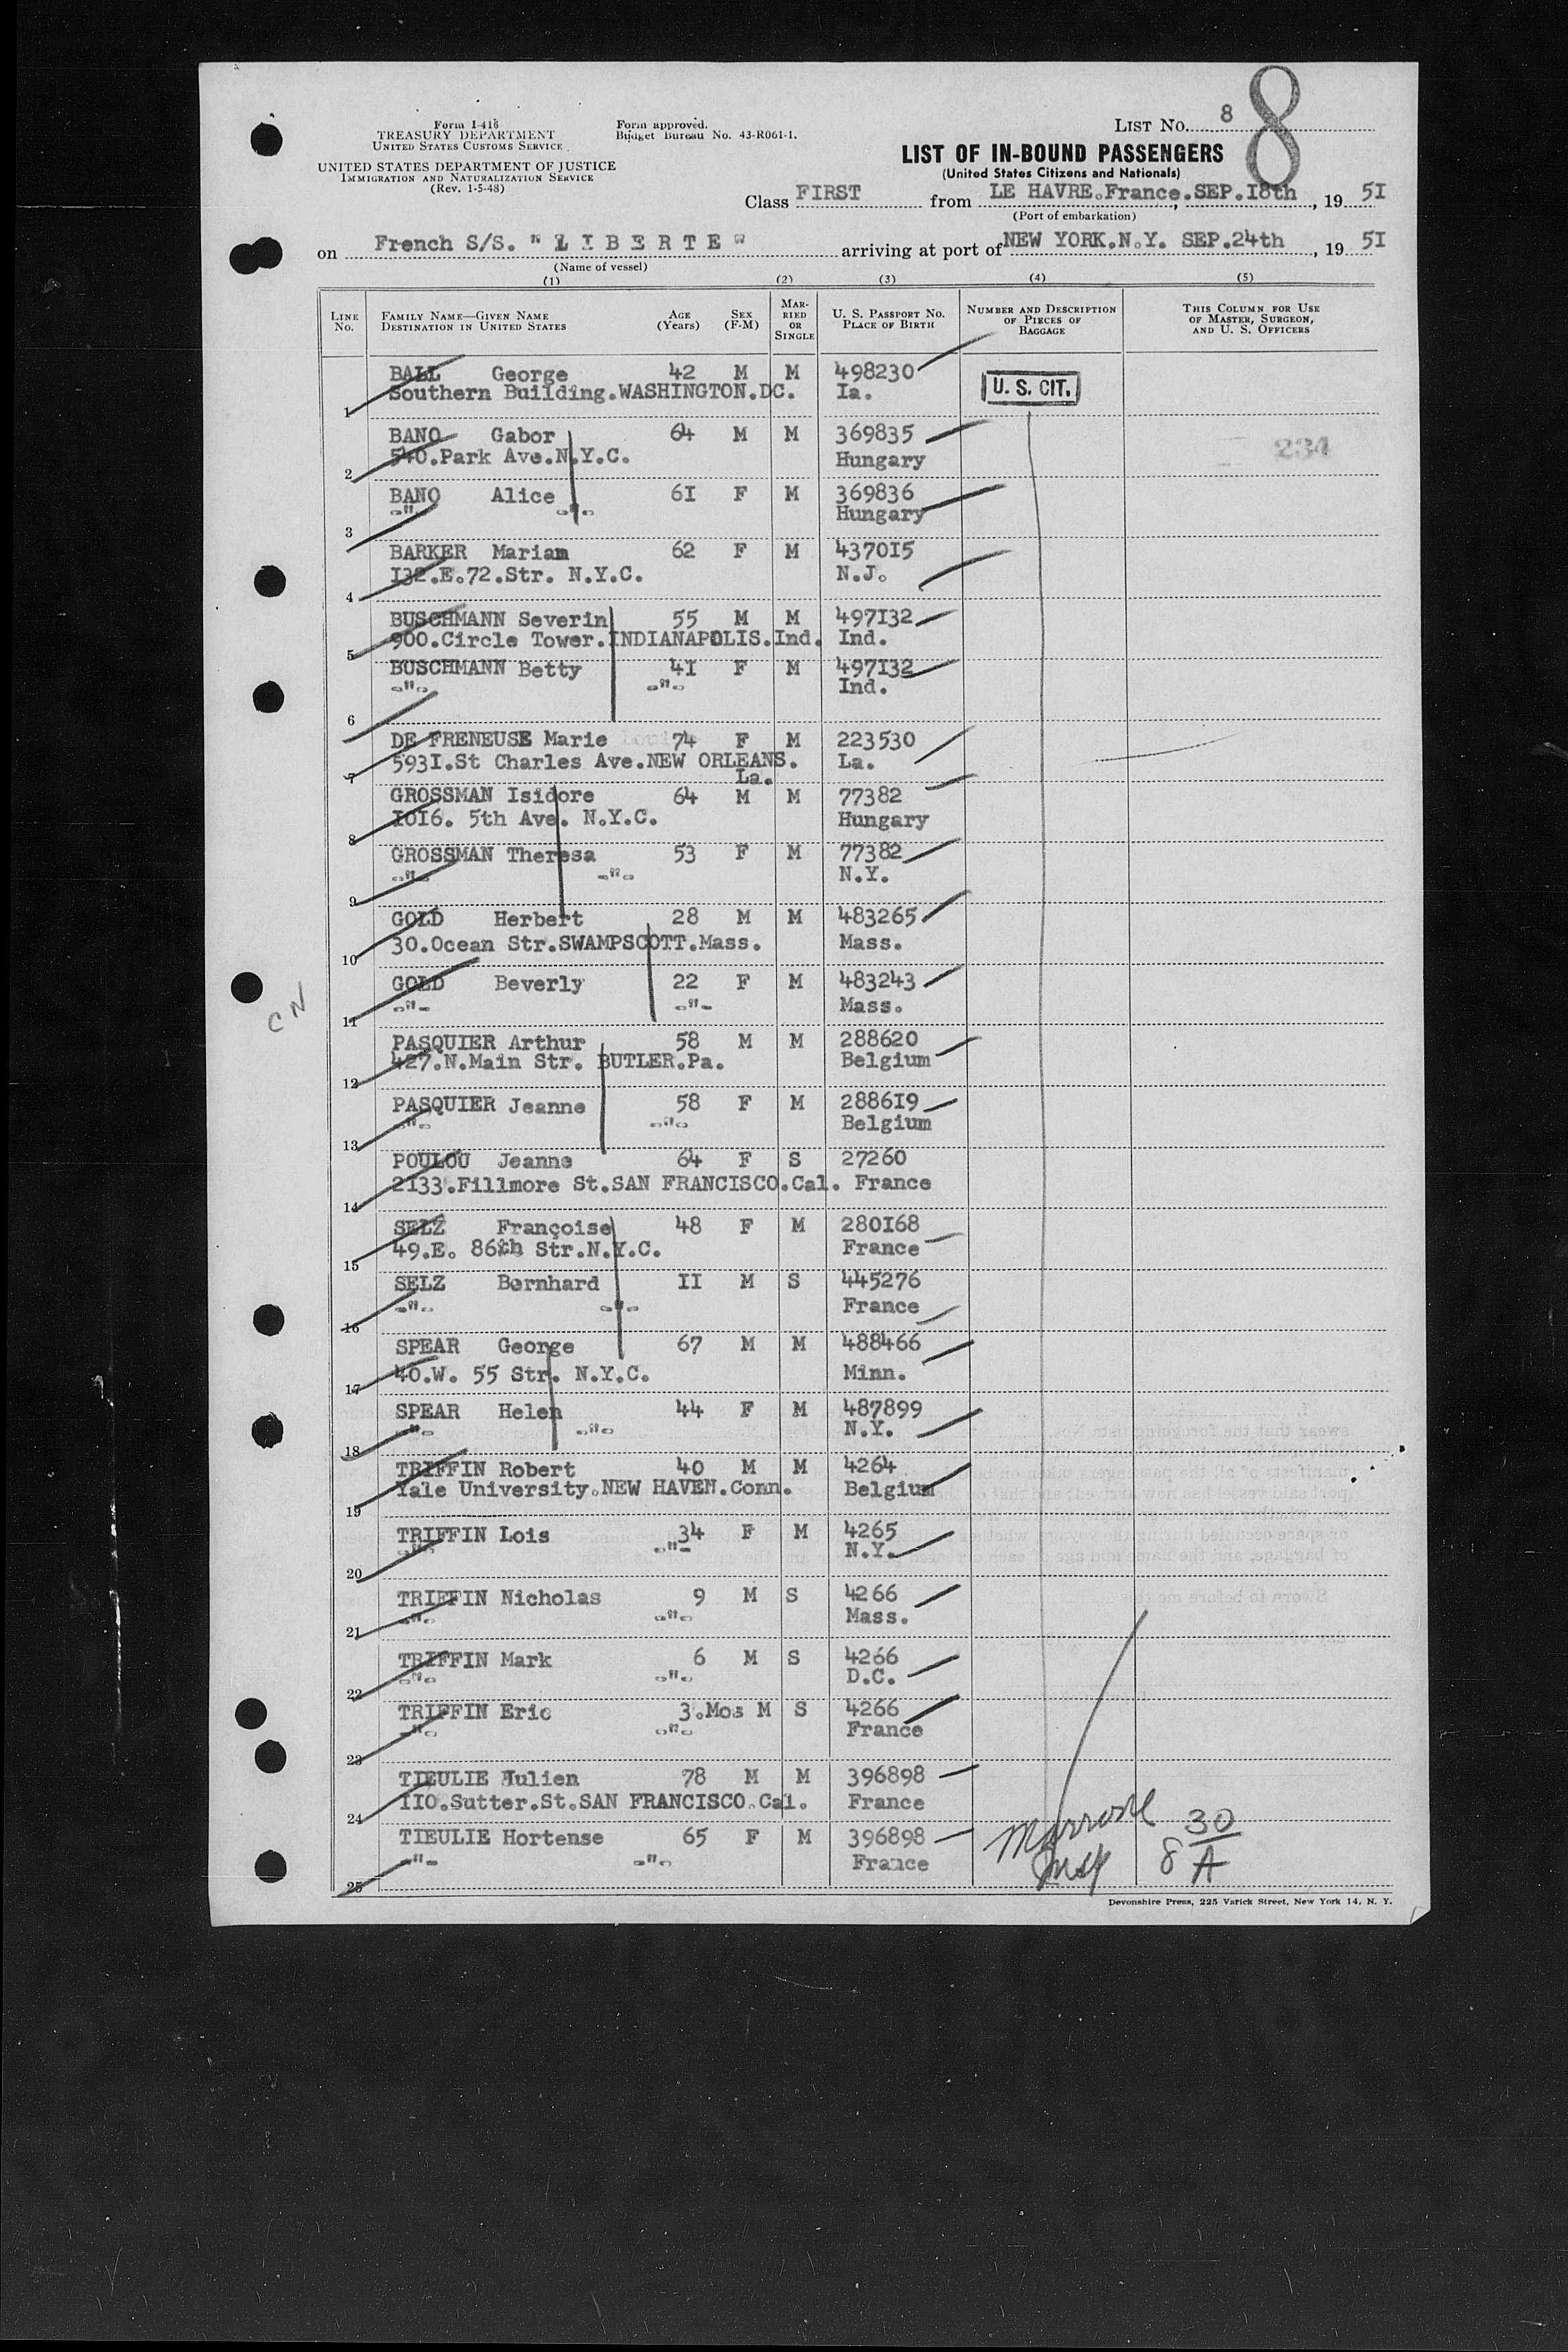 Form I-418
TREASURY DEPARTMENT
UNITED STATES CUSTOMS SERVICE
UNITED STATES DEPARTMENT OF JUSTICE
IMMIGRATION AND NATURALIZATION SERVICE
(Rev. 1-5-48)
Form approved.
Budget Bureau No. 43-R061-1.
LIST NO. 8
8
LIST OF IN-BOUND PASSENGERS
(United States Citizens and Nationals)
Class FIRST from LE HAVRE.France.SEP.I8th, 19 5I
(Port of embarkation)
on French S/S. "L I B E R T E" arriving at port of NEW YORK.N.Y. SEP.24th, 19 5I
(Name of vessel)
(1) (2) (3) (4) (5)
LINE NO. FAMILY NAME—GIVEN NAME DESTINATION IN UNITED STATES AGE (Years) SEX (F-M) MARRIED OR SINGLE U. S. PASSPORT NO. PLACE OF BIRTH NUMBER AND DESCRIPTION OF PIECES OF BAGGAGE THIS COLUMN FOR USE OF MASTER, SURGEON, AND U. S. OFFICERS
BALL George 42 M M 498230
1 Southern Building.WASHINGTON.DC. Ia. U. S. CIT.
BANO Gabor 64 M M 369835
2 540.Park Ave.N.Y.C. Hungary 234
BANO Alice 6I F M 369836
3 -"- -"- Hungary
BARKER Mariam 62 F M 4370I5
4 I32.E.72.Str. N.Y.C. N.J.
BUSCHMANN Severin 55 M M 497I32
5 900.Circle Tower.INDIANAPOLIS.Ind. Ind.
BUSCHMANN Betty 4I F M 497I32
6 -"- -"- Ind.
DE FRENEUSE Marie 74 F M 223530
7 593I.St Charles Ave.NEW ORLEANS. La.
La.
GROSSMAN Isidore 64 M M 77382
8 I0I6. 5th Ave. N.Y.C. Hungary
GROSSMAN Theresa 53 F M 77382
9 -"- -"- N.Y.
GOLD Herbert 28 M M 483265
10 30.Ocean Str.SWAMPSCOTT.Mass. Mass.
GOLD Beverly 22 F M 483243
11 -"- -"- Mass.
CN
PASQUIER Arthur 58 M M 288620
12 427.N.Main Str. BUTLER.Pa. Belgium
PASQUIER Jeanne 58 F M 2886I9
13 -"- -"- Belgium
POULOU Jeanne 64 F S 27260
14 2I33.Fillmore St.SAN FRANCISCO.Cal. France
SELZ Françoise 48 F M 280I68
15 49.E. 86th Str.N.Y.C. France
SELZ Bernhard II M S 445276
16 -"- -"- France
SPEAR George 67 M M 488466
17 40.W. 55 Str. N.Y.C. Minn.
SPEAR Helen 44 F M 487899
18 -"- -"- N.Y.
TRIFFIN Robert 40 M M 4264
19 Yale University.NEW HAVEN.Conn. Belgium
TRIFFIN Lois 34 F M 4265
20 -"- -"- N.Y.
TRIFFIN Nicholas 9 M S 4266
21 -"- -"- Mass.
TRIFFIN Mark 6 M S 4266
22 -"- -"- D.C.
TRIFFIN Eric 3.Mos M S 4266
23 -"- -"- France
TIEULIE Julien 78 M M 396898
24 II0.Sutter.St.SAN FRANCISCO.Cal. France
TIEULIE Hortense 65 F M 396898
25 -"- -"- France
8 30/A
Devonshire Press, 225 Varick Street, New York 14, N. Y.